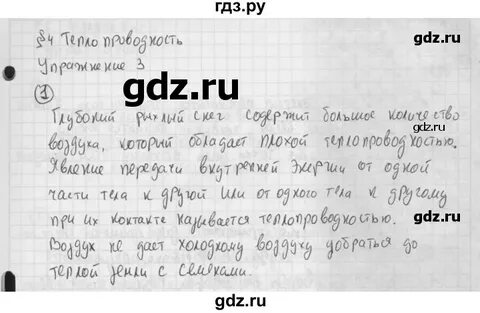 гдз.ру
§4 Теплопроводность
Упражнение 3
gdz.ru
gdz.ru
1
Глубокий рыхлый снег содержит большое количество
воздуха, который обладает плохой теплопроводностью.
Явление передачи внутренней энергии от одной
части тела к другой или от одного тела к другому
при их контакте называется теплопроводностью.
Воздух не дает холодному воздуху добраться до
теплой земли с семенами.
gdz.ru
gdz.ru